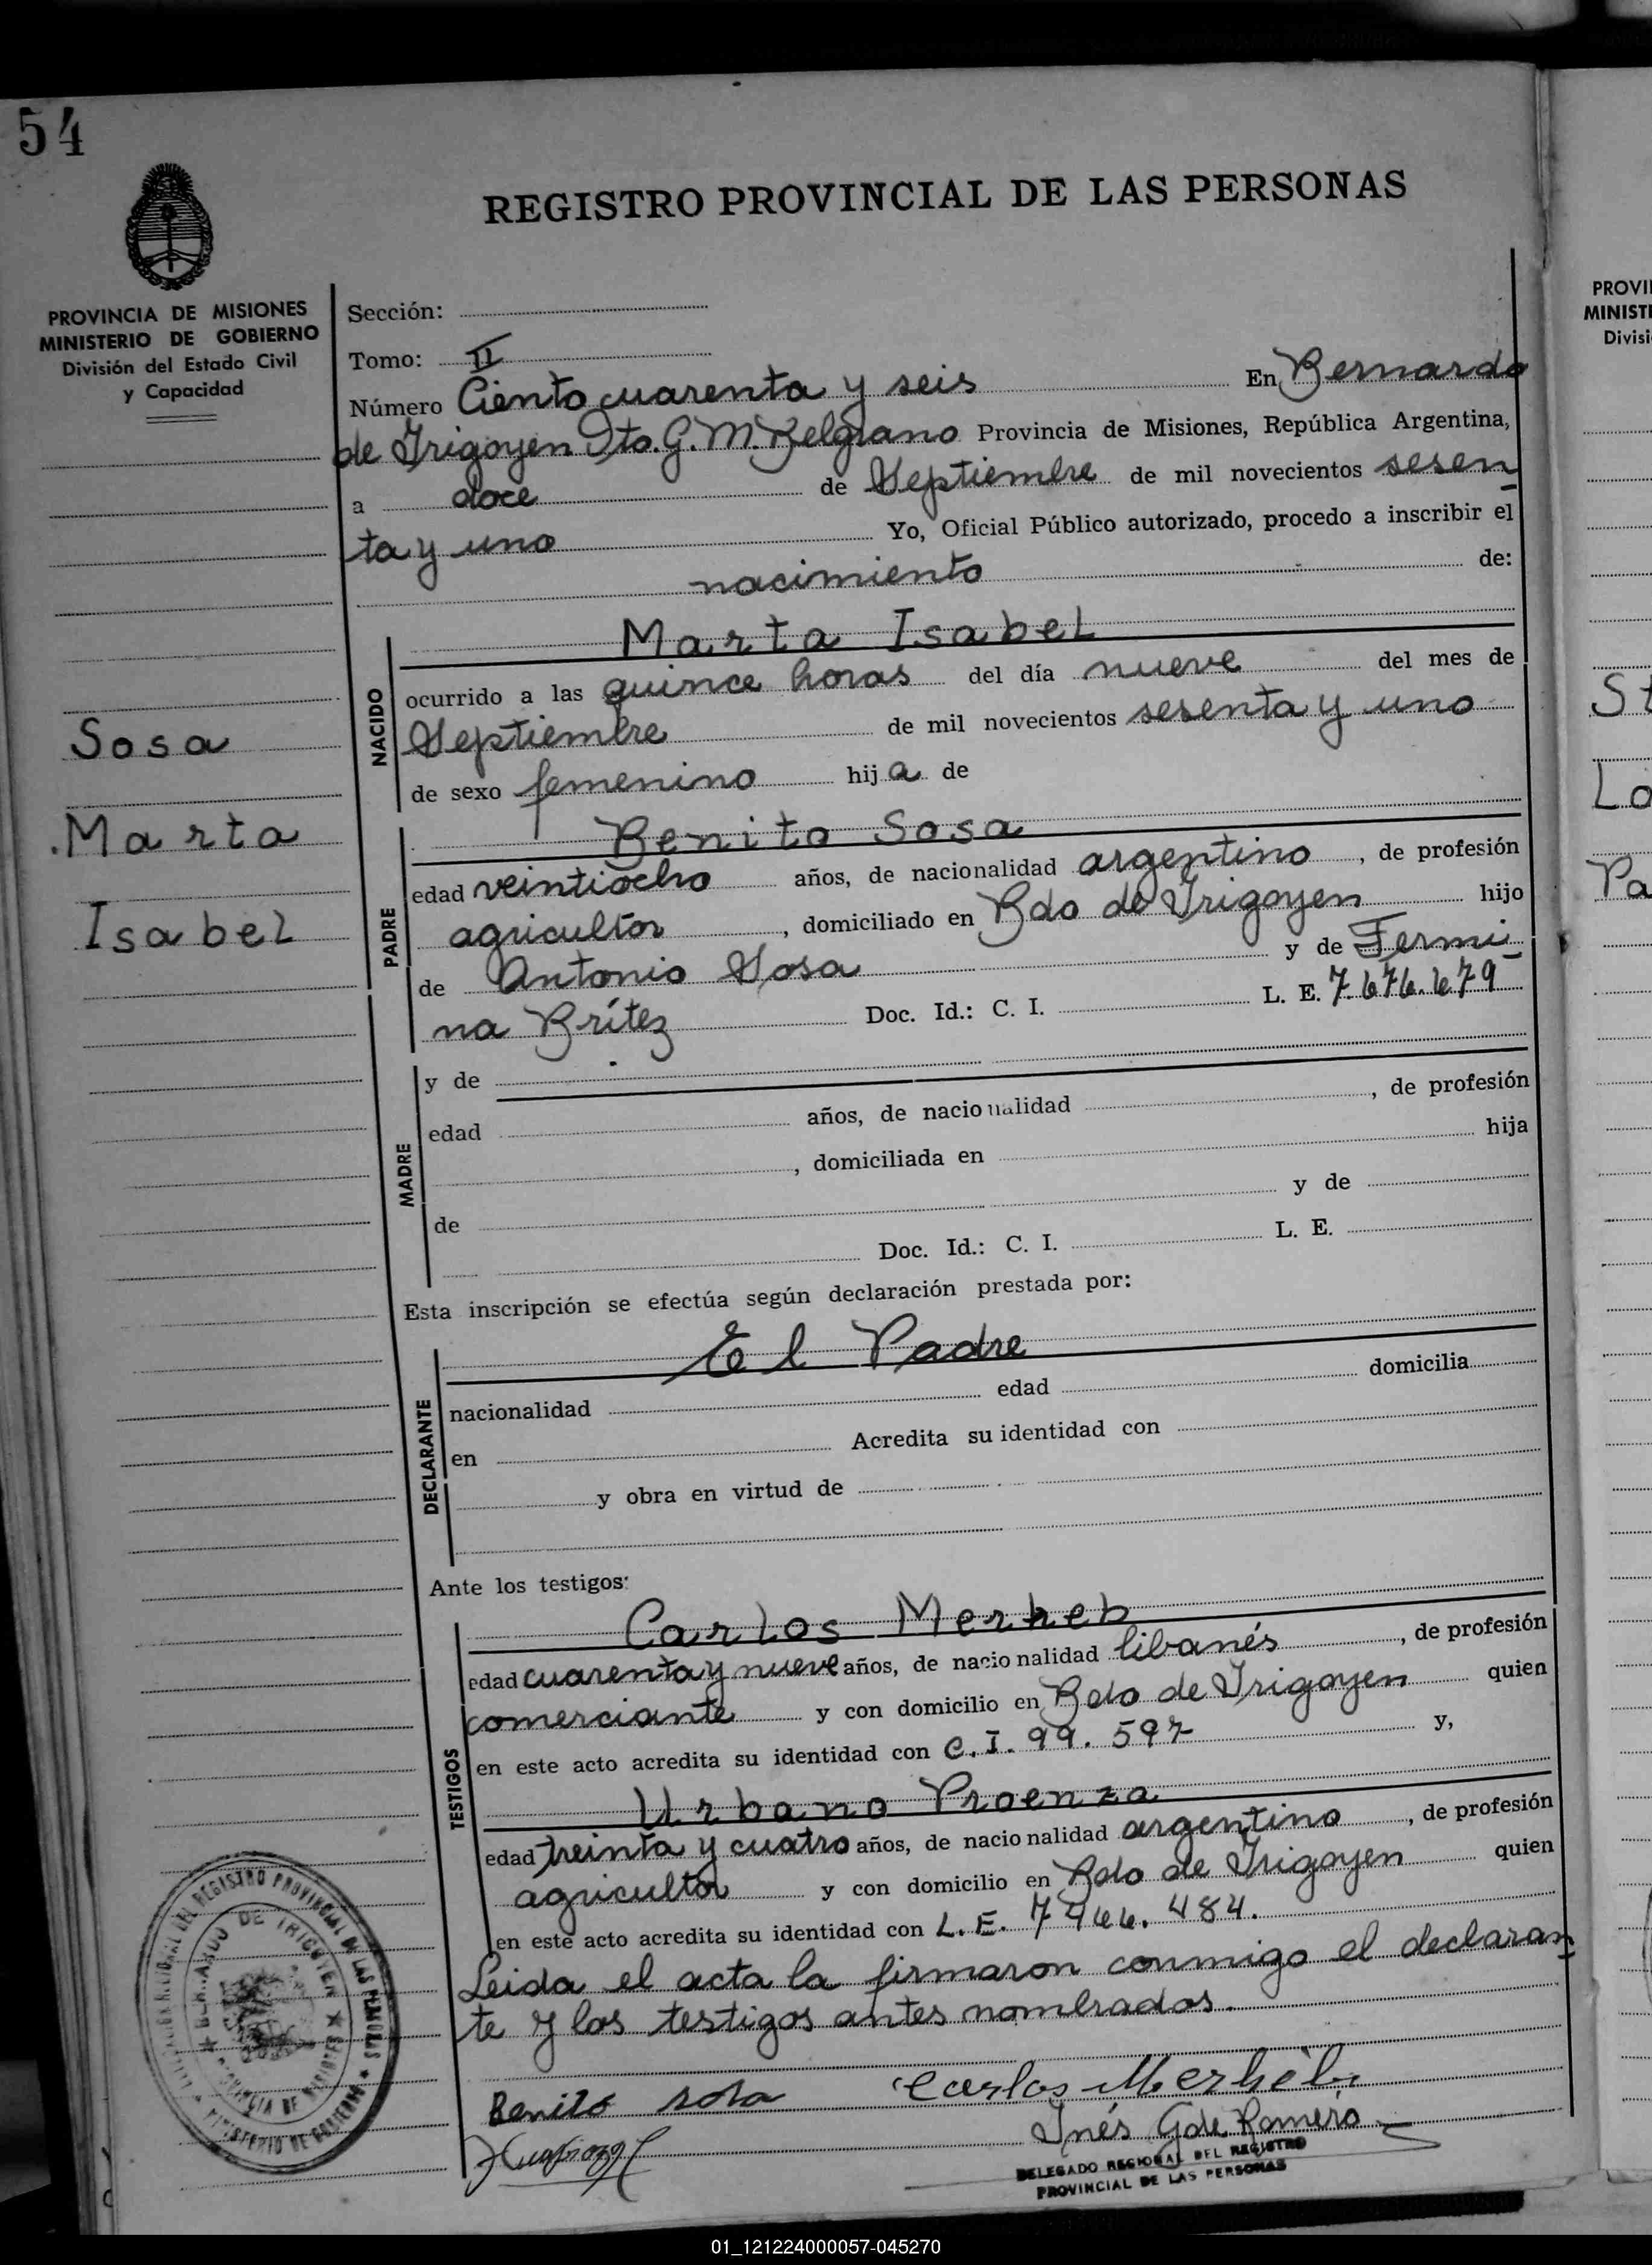 54
REGISTRO PROVINCIAL DE LAS PERSONAS
PROVINCIA DE MISIONES
MINISTERIO DE GOBIERNO
División del Estado Civil
y Capacidad
Sección:
Tomo: II
Número Ciento cuarenta y seis En Bernardo
de Irigoyen Dto. G. M. Belgrano Provincia de Misiones, República Argentina,
a doce de Septiembre de mil novecientos sesen
ta y uno Yo, Oficial Público autorizado, procedo a inscribir el
nacimiento de:
Sosa
Marta
Isabel
NACIDO
Marta Isabel
ocurrido a las quince horas del día nueve del mes de
Septiembre de mil novecientos sesenta y uno
de sexo femenino hija de
PADRE
Benito Sosa
edad veintiocho años, de nacionalidad argentino, de profesión
agricultor, domiciliado en Bdo de Irigoyen hijo
de Antonio Sosa y de Fermi
na Brítez Doc. Id.: C. I. L. E. 7.676.679
MADRE
y de
edad años, de nacionalidad, de profesión
, domiciliada en hija
de y de
Doc. Id.: C. I. L. E.
Esta inscripción se efectúa según declaración prestada por:
DECLARANTE
El Padre
nacionalidad edad domicilia
en Acredita su identidad con
y obra en virtud de
Ante los testigos:
TESTIGOS
Carlos Merheb
edad cuarenta y nueve años, de nacionalidad libanés, de profesión
comerciante y con domicilio en Bdo de Irigoyen quien
en este acto acredita su identidad con C. I. 99. 597 y,
Urbano Proenza
edad treinta y cuatro años, de nacionalidad argentino, de profesión
agricultor y con domicilio en Bdo de Irigoyen quien
en este acto acredita su identidad con L. E. 7466. 484.
Leida el acta la firmaron conmigo el declaran
te y los testigos antes nombrados.
Benito sosa Carlos Merheb
Inés G de Romero
DELEGADO REGIONAL DEL REGISTRO
PROVINCIAL DE LAS PERSONAS
DEL REGISTRO PROVINCIAL DE LAS PERSONAS
MINISTERIO DE GOBIERNO
BERNARDO DE IRIGOYEN
PROVINCIA DE MISIONES
PROVI
MINIST
Divisi
St
Lo
Pa
01_121224000057-045270